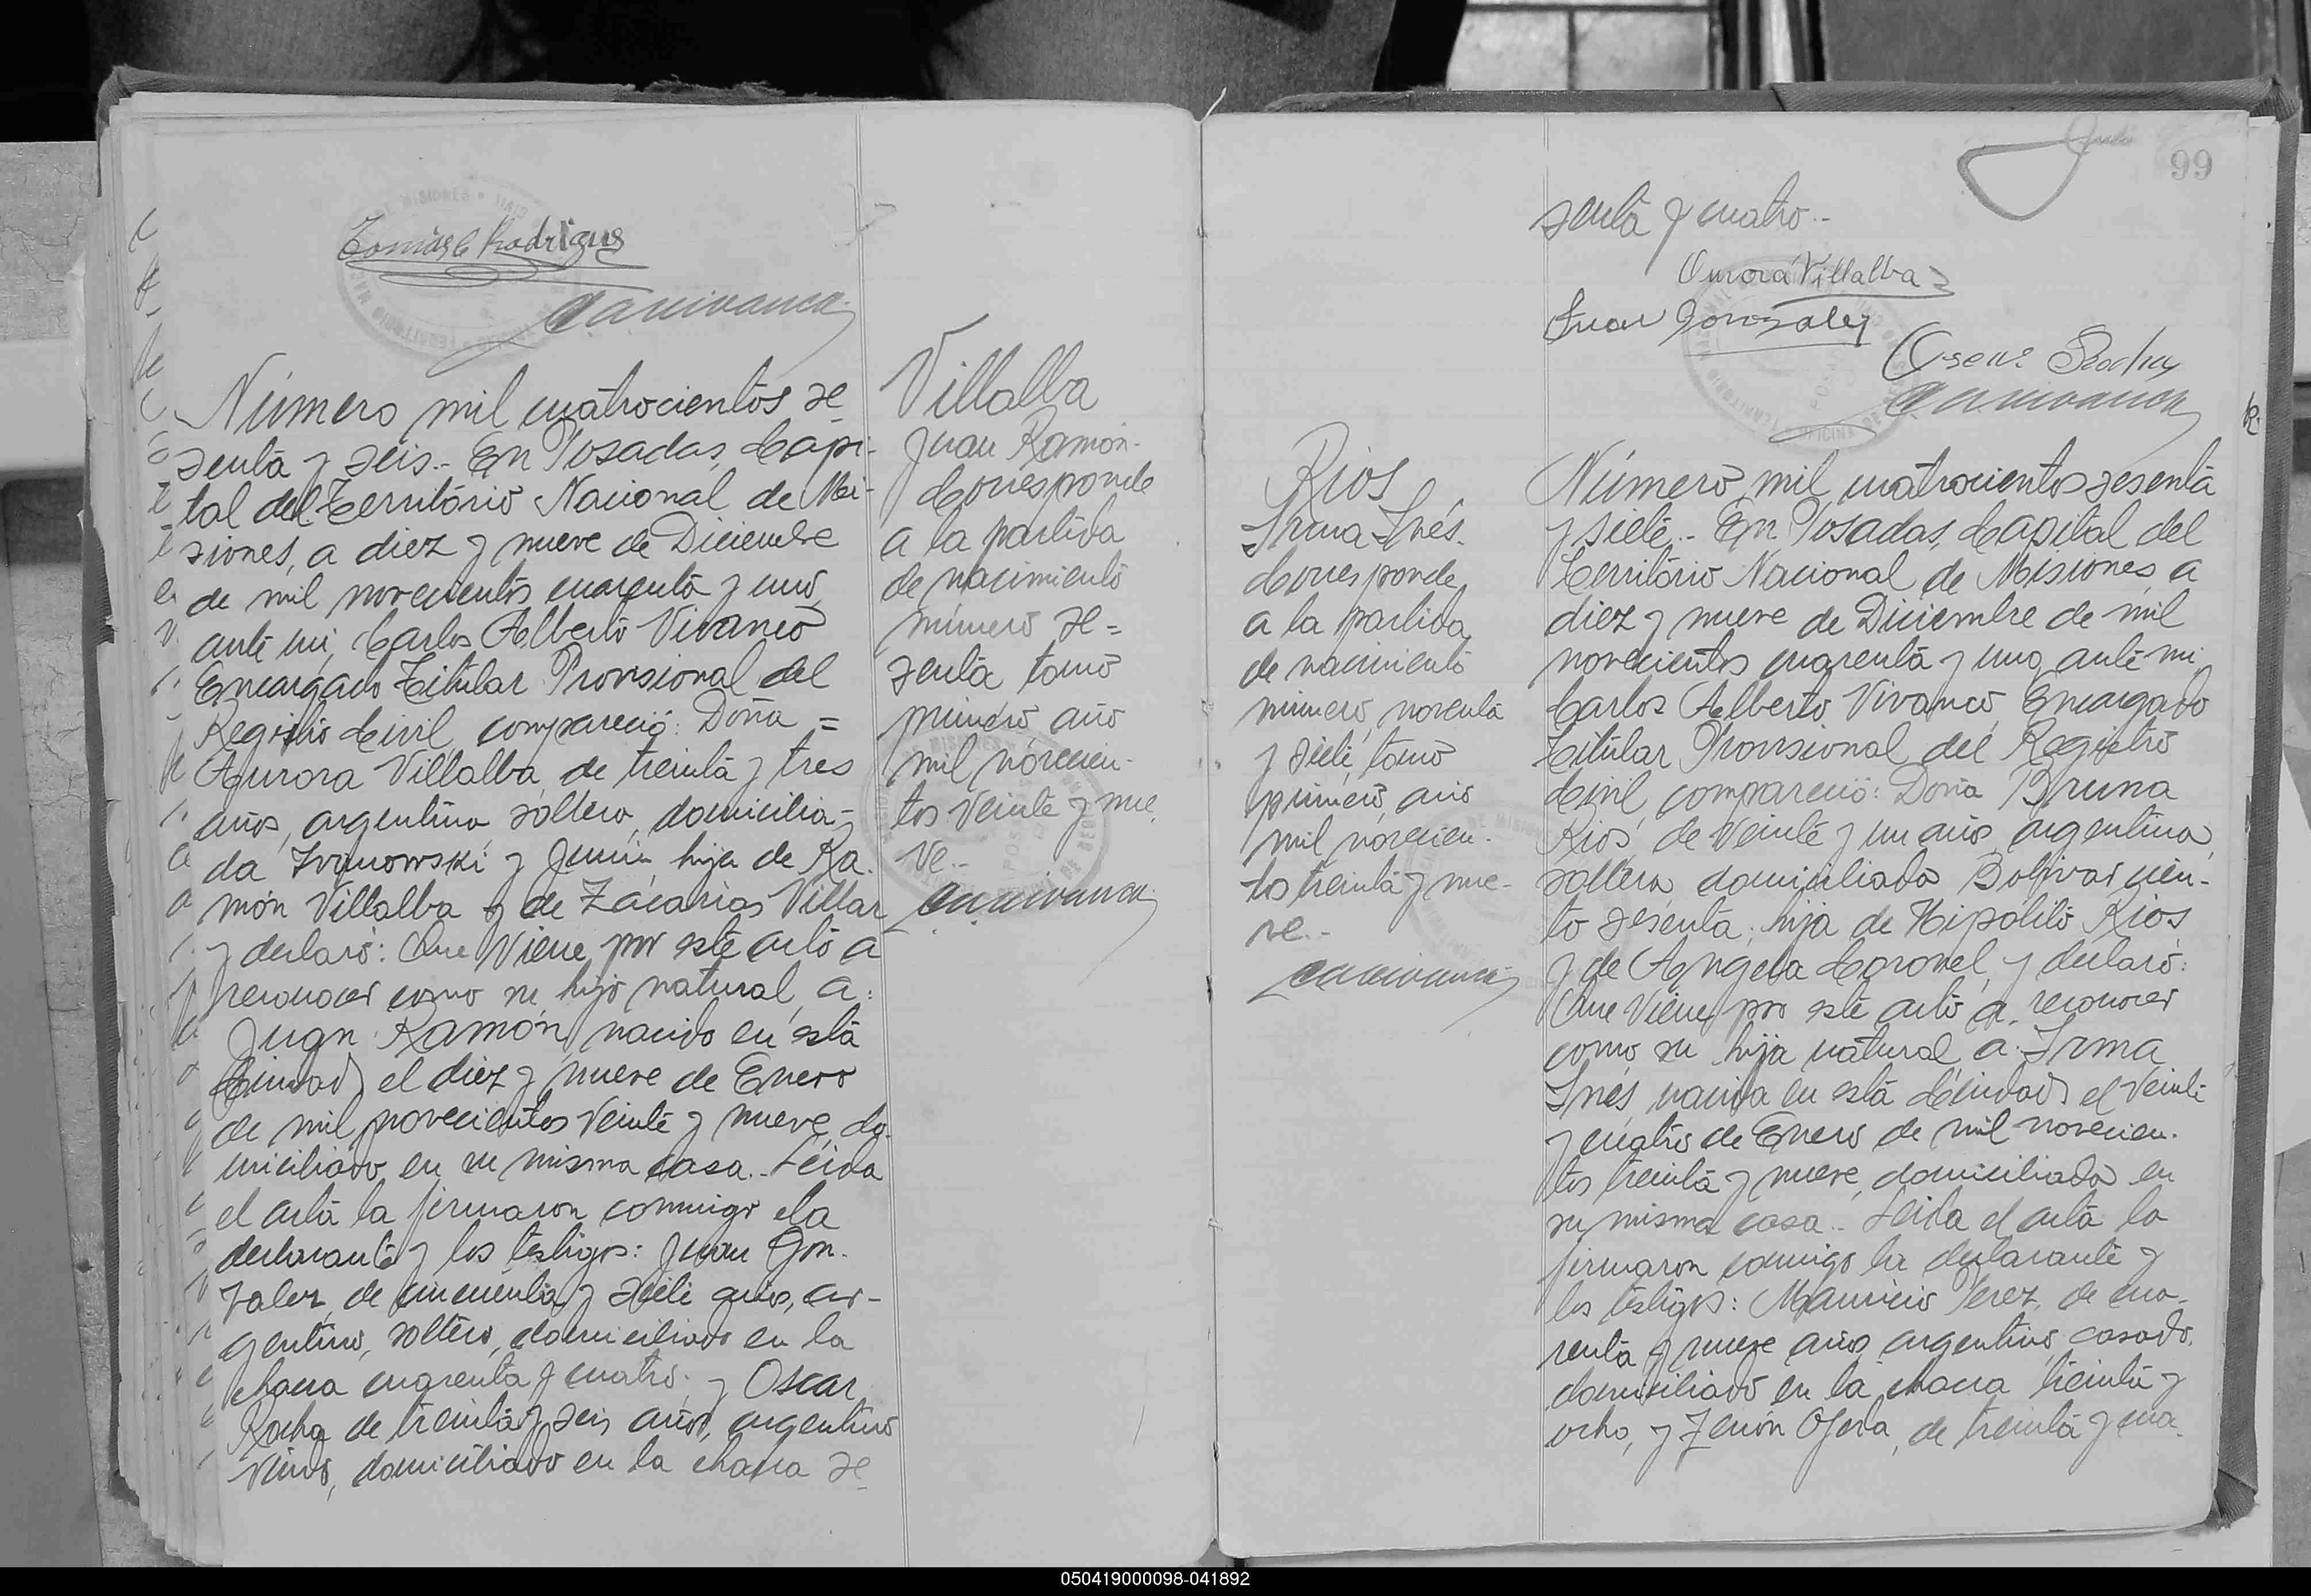 Tomás C Rodrigues
CAVivanco
Número mil cuatrocientos se
senta y seis.- En Posadas, Capi-
tal del Territorio Nacional de Mi-
siones, a diez y nueve de Diciembre
de mil novecientos cuarenta y uno,
ante mi, Carlos Alberto Vivanco
Encargado Titular Provisional del
Registro Civil, compareció: Doña =
Aurora Villalba, de treinta y tres
años, argentina soltera, domicilia-
da Ivanowski y Junin, hija de Ra-
món Villalba y de Zacarias Villar
y declaró: Que Viene por este acto a
reconocer como su hijo natural, a:
Juan Ramón, nacido en esta
Ciudad, el diez y nueve de Enero
de mil novecientos Veinte y nueve, do-
miciliado en su misma casa.- Leida
el acta la firmaron conmigo ela
declarante y los testigos: Juan Gon-
zalez, de cincuenta y siete años, ar-
gentino, soltero, domiciliado en la
chacra cuarenta y cuatro; y Oscar
Rocha de treinta y seis años, argentino
viudo, domiciliado en la chacra se
Villalba
Juan Ramón-
Corresponde
a la partida
de nacimiento
número se=
senta tomo
primero año
mil novecien-
tos Veinte y nue,
ve.-
CAVivanco
99
senta y cuatro.-
Aurora Villalba
Juan Gonzalez
Oscar Rocha
CAVivanco
Rios
Irma Inés.
Corresponde
a la partida
de nacimiento
número, noventa
y siete, tomo
primero, año
mil novecien-
tos treinta y nue-
ve.-
CAVivanco
Número mil cuatrocientos sesenta
y siete.- En Posadas, Capital del
Territorio Nacional de Misiones, a
diez y nueve de Diciembre de mil
novecientos cuarenta y uno, ante mi,
Carlos Alberto Vivanco, Encargado
Titular Provisional del Registro
Civil, compareció: Doña Bruna
Rios, de Veinte y un años, argentina,
soltera, domiciliada Bolivar cien-
to sesenta; hija de Hipólito Rios
y de Angela Coronel, y declaró:
Que Viene por este acto a, reconocer
como su hija natural a: Irma
Inés, nacida en esta Ciudad, el Veinte
y cuatro de Enero de mil novecien-
tos treinta y nueve, domiciliada en
su misma casa.- Leida el acta la
firmaron conmigo la declarante y
los testigos: Mauricio Perez, de cua-
renta y nueve años, argentino, casado,
domiciliado en la chacra treinta y
ocho, y Zenón Ojeda, de treinta y cua-
050419000098-041892